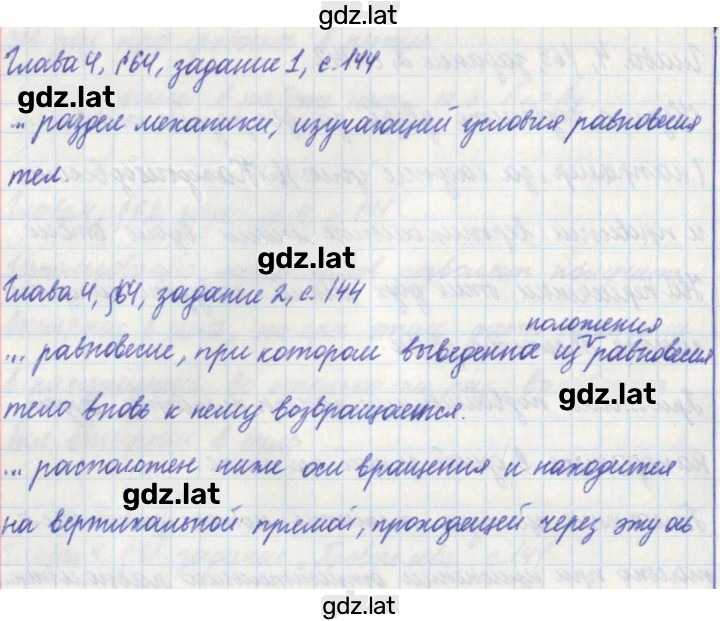 gdz.lat
Глава 4, §64, задание 1, с. 144
gdz.lat
... раздел механики, изучающий условия равновесия
тел.
gdz.lat
Глава 4, §64, задание 2, с. 144
положения
... равновесие, при котором выведенное из равновесия
gdz.lat
тело вновь к нему возвращается.
... расположен ниже оси вращения и находится
gdz.lat
на вертикальной прямой, проходящей через эту ось
gdz.lat